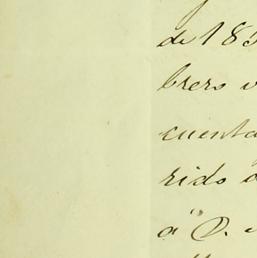 de 185
brero
cuenta
rido
a D.